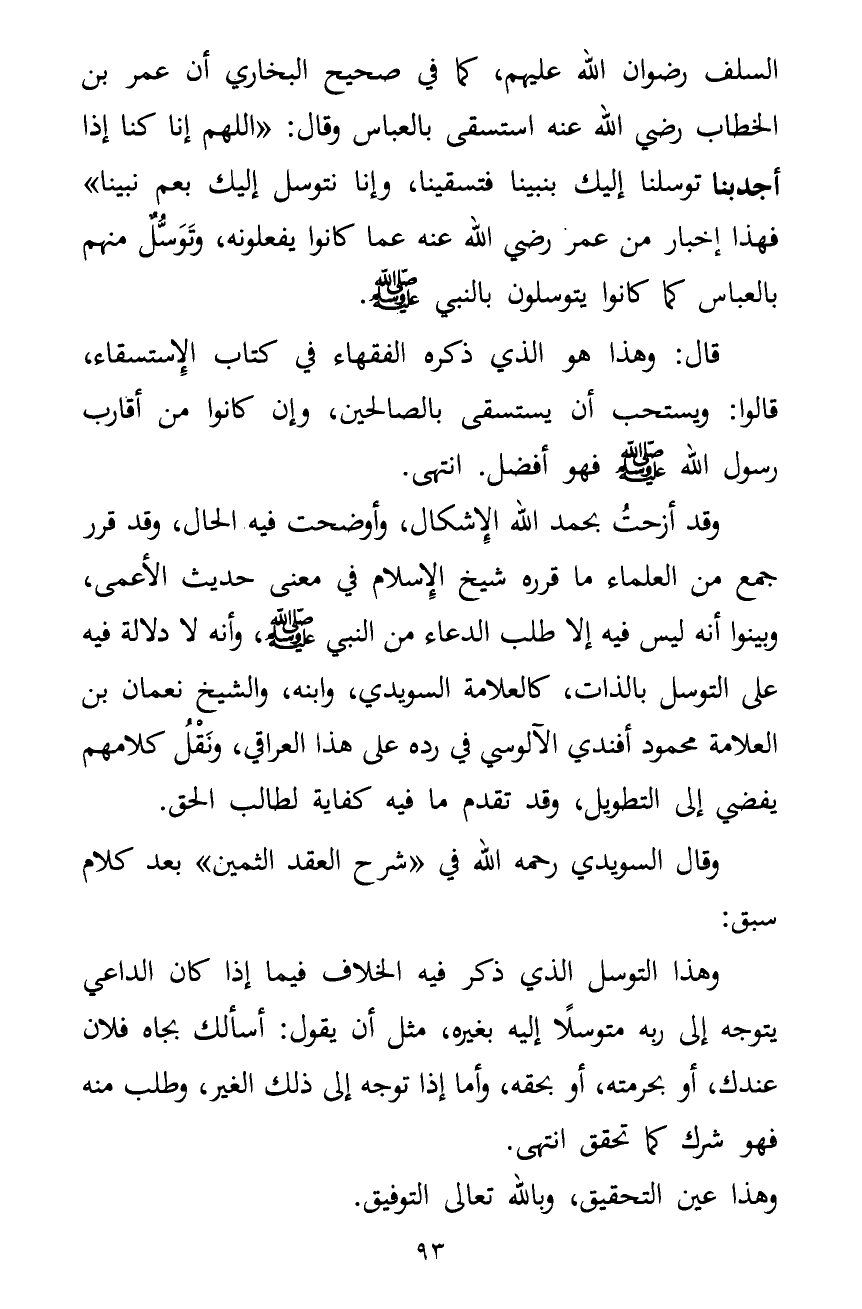 السلف رضوان الله عليهم، كما في صحيح البخاري أن عمر بن
الخطاب رضي الله عنه استسقى بالعباس وقال: «اللهم إنا كنا إذا
أجدبنا توسلنا إليك بنبينا فتسقينا، وإنا نتوسل إليك بعم نبينا»
فهذا إخبار من عمر رضي الله عنه عما كانوا يفعلونه، وتَوَسُّلٌ منهم
بالعباس كما كانوا يتوسلون بالنبي ﷺ.
قال: وهذا هو الذي ذكره الفقهاء في كتاب الإستسقاء،
قالوا: ويستحب أن يستسقى بالصالحين، وإن كانوا من أقارب
رسول الله ﷺ فهو أفضل. انتهى.
وقد أزحتُ بحمد الله الإشكال، وأوضحت فيه الحال، وقد قرر
جمع من العلماء ما قرره شيخ الإسلام في معنى حديث الأعمى،
وبينوا أنه ليس فيه إلا طلب الدعاء من النبي ﷺ، وأنه لا دلالة فيه
على التوسل بالذات، كالعلامة السويدي، وابنه، والشيخ نعمان بن
العلامة محمود أفندي الآلوسي في رده على هذا العراقي، ونَقْلُ كلامهم
يفضي إلى التطويل، وقد تقدم ما فيه كفاية لطالب الحق.
وقال السويدي رحمه الله في «شرح العقد الثمين» بعد كلام
سبق:
وهذا التوسل الذي ذكر فيه الخلاف فيما إذا كان الداعي
يتوجه إلى ربه متوسلًا إليه بغيره، مثل أن يقول: أسألك بجاه فلان
عندك، أو بحرمته، أو بحقه، وأما إذا توجه إلى ذلك الغير، وطلب منه
فهو شرك كما تحقق انتهى.
وهذا عين التحقيق، وبالله تعالى التوفيق.
٩٣